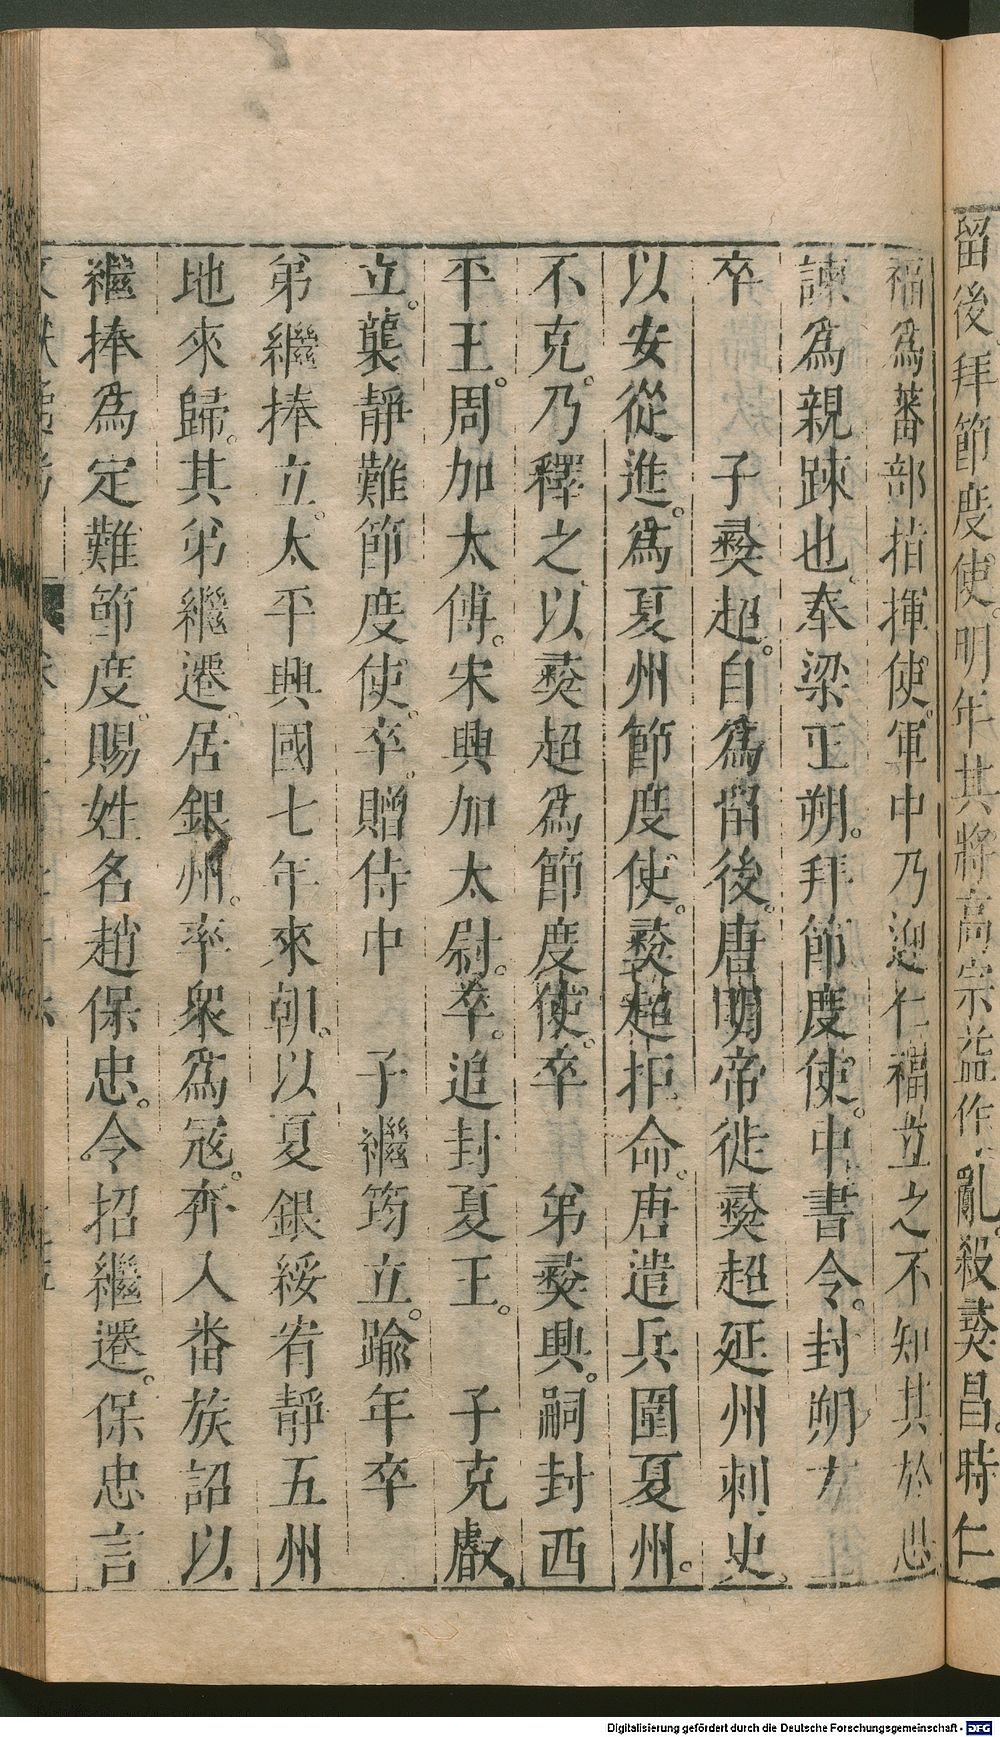 留後。拜節度使。明年其將高宗益作亂。殺彝昌。時仁
福爲蕃部指揮使。軍中乃迎仁福立之。不知其於思
諫爲親踈也。奉梁正朔。拜節度使。中書令。封朔方
卒 子彝超。自爲留後。唐明帝徙彝超延州刺史。
以安從進。爲夏州節度使。彝超拒命。唐遣兵圍夏州。
不克。乃釋之、以彝超爲節度使。卒 弟彝興。嗣封西
平王。周加太傅。宋興加太尉。卒。追封夏王。 子克叡。
立。襲靜難節度使。卒。贈侍中 子繼筠立。踰年卒
弟繼捧立。太平興國七年來朝。以夏銀綏宥靜五州
地來歸。其弟繼遷。居銀州。率衆爲寇。奔入番族詔以
繼捧爲定難節度。賜姓名趙保忠。令招繼遷。保忠言
Digitalisierung gefördert durch die Deutsche Forschungsgemeinschaft - DFG